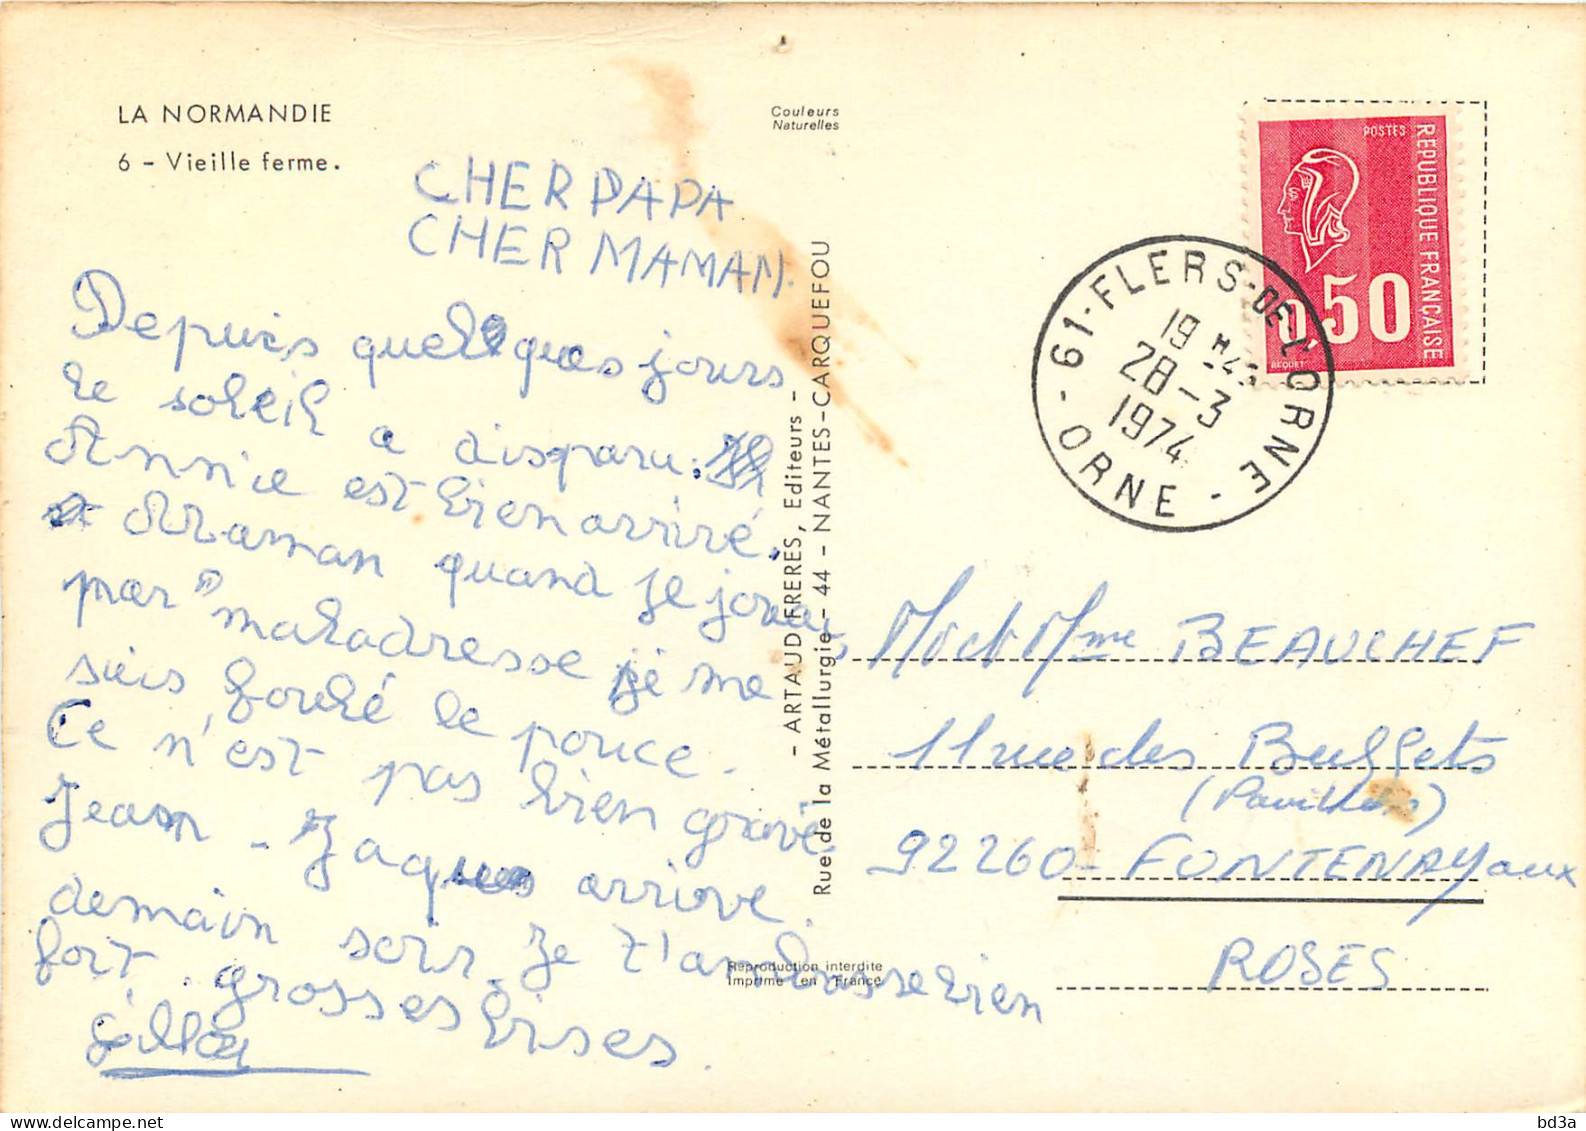 LA NORMANDIE
6 - Vieille ferme.
Couleurs
Naturelles
CHER PAPA
CHER MAMAN.
Depuis quelques jours
le soleil a disparu.
Annie est bien arrivé.
Maman quand je jouais
par "maladresse je me
suis foulé le pouce.
Ce n'est pas bien gravé.
Jean-Jaques arrive
demain soir. Je t'ambrasse bien
fort. grosses bises.
- ARTAUD FRERES, Editeurs -
Rue de la Métallurgie - 44 - NANTES-CARQUEFOU
Reproduction interdite
Imprimé en France
POSTES
REPUBLIQUE FRANÇAISE
0,50
BEQUET
61-FLERS-DE-L'ORNE
19 H 45
28-3
1974
- ORNE -
M et Mme BEAUCHEF
11 rue des Buffets
(Pavillons)
92260 - FONTENAY aux
ROSES
bd3a